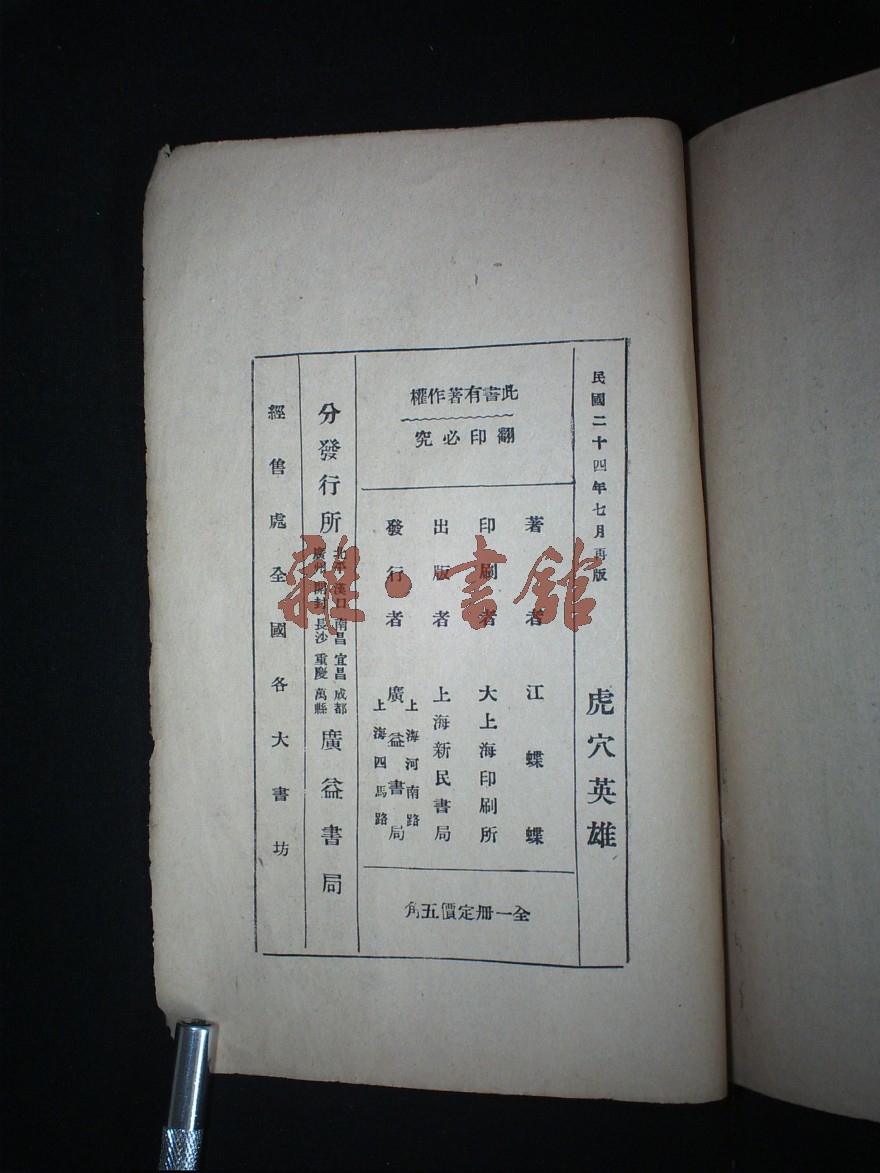 民國二十四年七月再版
虎穴英雄
此書有著作權
翻印必究
著者 江蝶蝶
印刷者 大上海印刷所
出版者 上海新民書局
發行者 廣益書局
上海河南路
上海四馬路
全一冊定價五角
分發行所
北平 漢口 南昌 宜昌 成都
廣州 開封 長沙 重慶 萬縣
廣益書局
經售處全國各大書坊
雜·書館